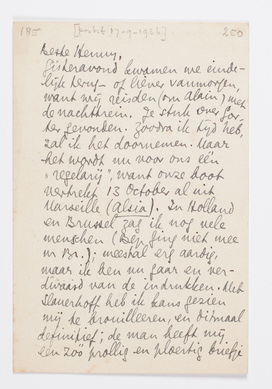 195 [poststempel 17-9-1936] 250
Beste Henny,
Gisteravond kwamen we einde-
lijk terug – of liever vanmorgen,
want wij reisden (om Alain) met
de nachttrein. Je stuk over Gor-
ter gevonden. Zoodra ik tijd heb,
zal ik het doornemen. Maar
het wordt nu voor ons één
"regelarij", want onze boot
vertrekt 13 October al uit
Marseille (Alsia). In Holland
en Brussel zag ik nog vele
menschen (Bep ging niet mee
n. Br.); meestal erg aardig,
maar ik ben nu gaar en ver-
dwaasd van de indrukken. Met
Slauerhoff heb ik kans gezien
mij te brouilleeren, en ditmaal
definitief; de man heeft mij
een zóó prollig en ploertig briefje